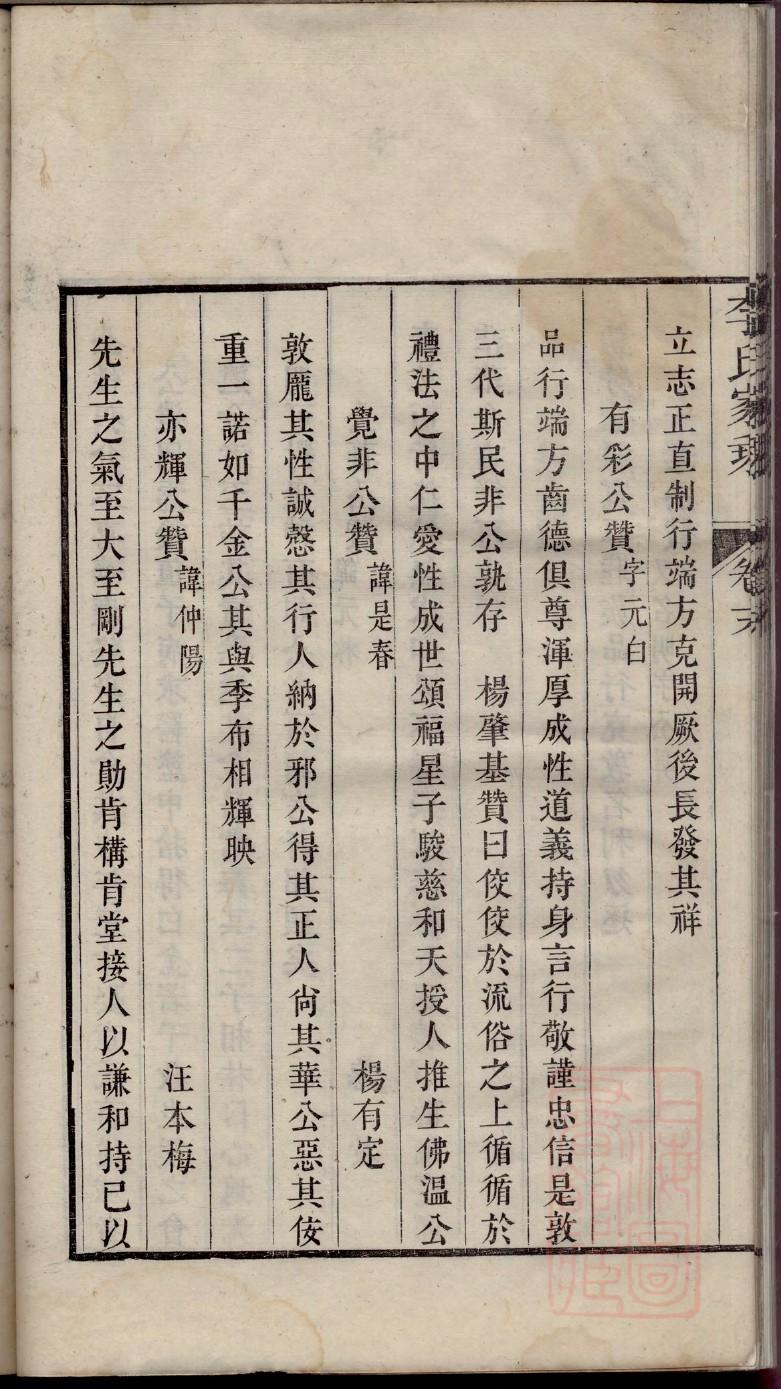 李氏家乘 卷末
立志正直制行端方克開厥後長發其祥
有彩公贊字元白
品行端方齒德俱尊渾厚成性道義持身言行敬謹忠信是敦
三代斯民非公孰存 楊肇基贊曰佼佼於流俗之上循循於
禮法之中仁愛性成世頌福星子駿慈和天授人推生佛溫公
覺非公贊諱是春 楊有定
敦龐其性誠愨其行人納於邪公得其正人尙其華公惡其侫
重一諾如千金公其與季布相輝映
亦輝公贊諱仲陽 汪本梅
先生之氣至大至剛先生之勛肯構肯堂接人以謙和持已以
上海圖
書館藏